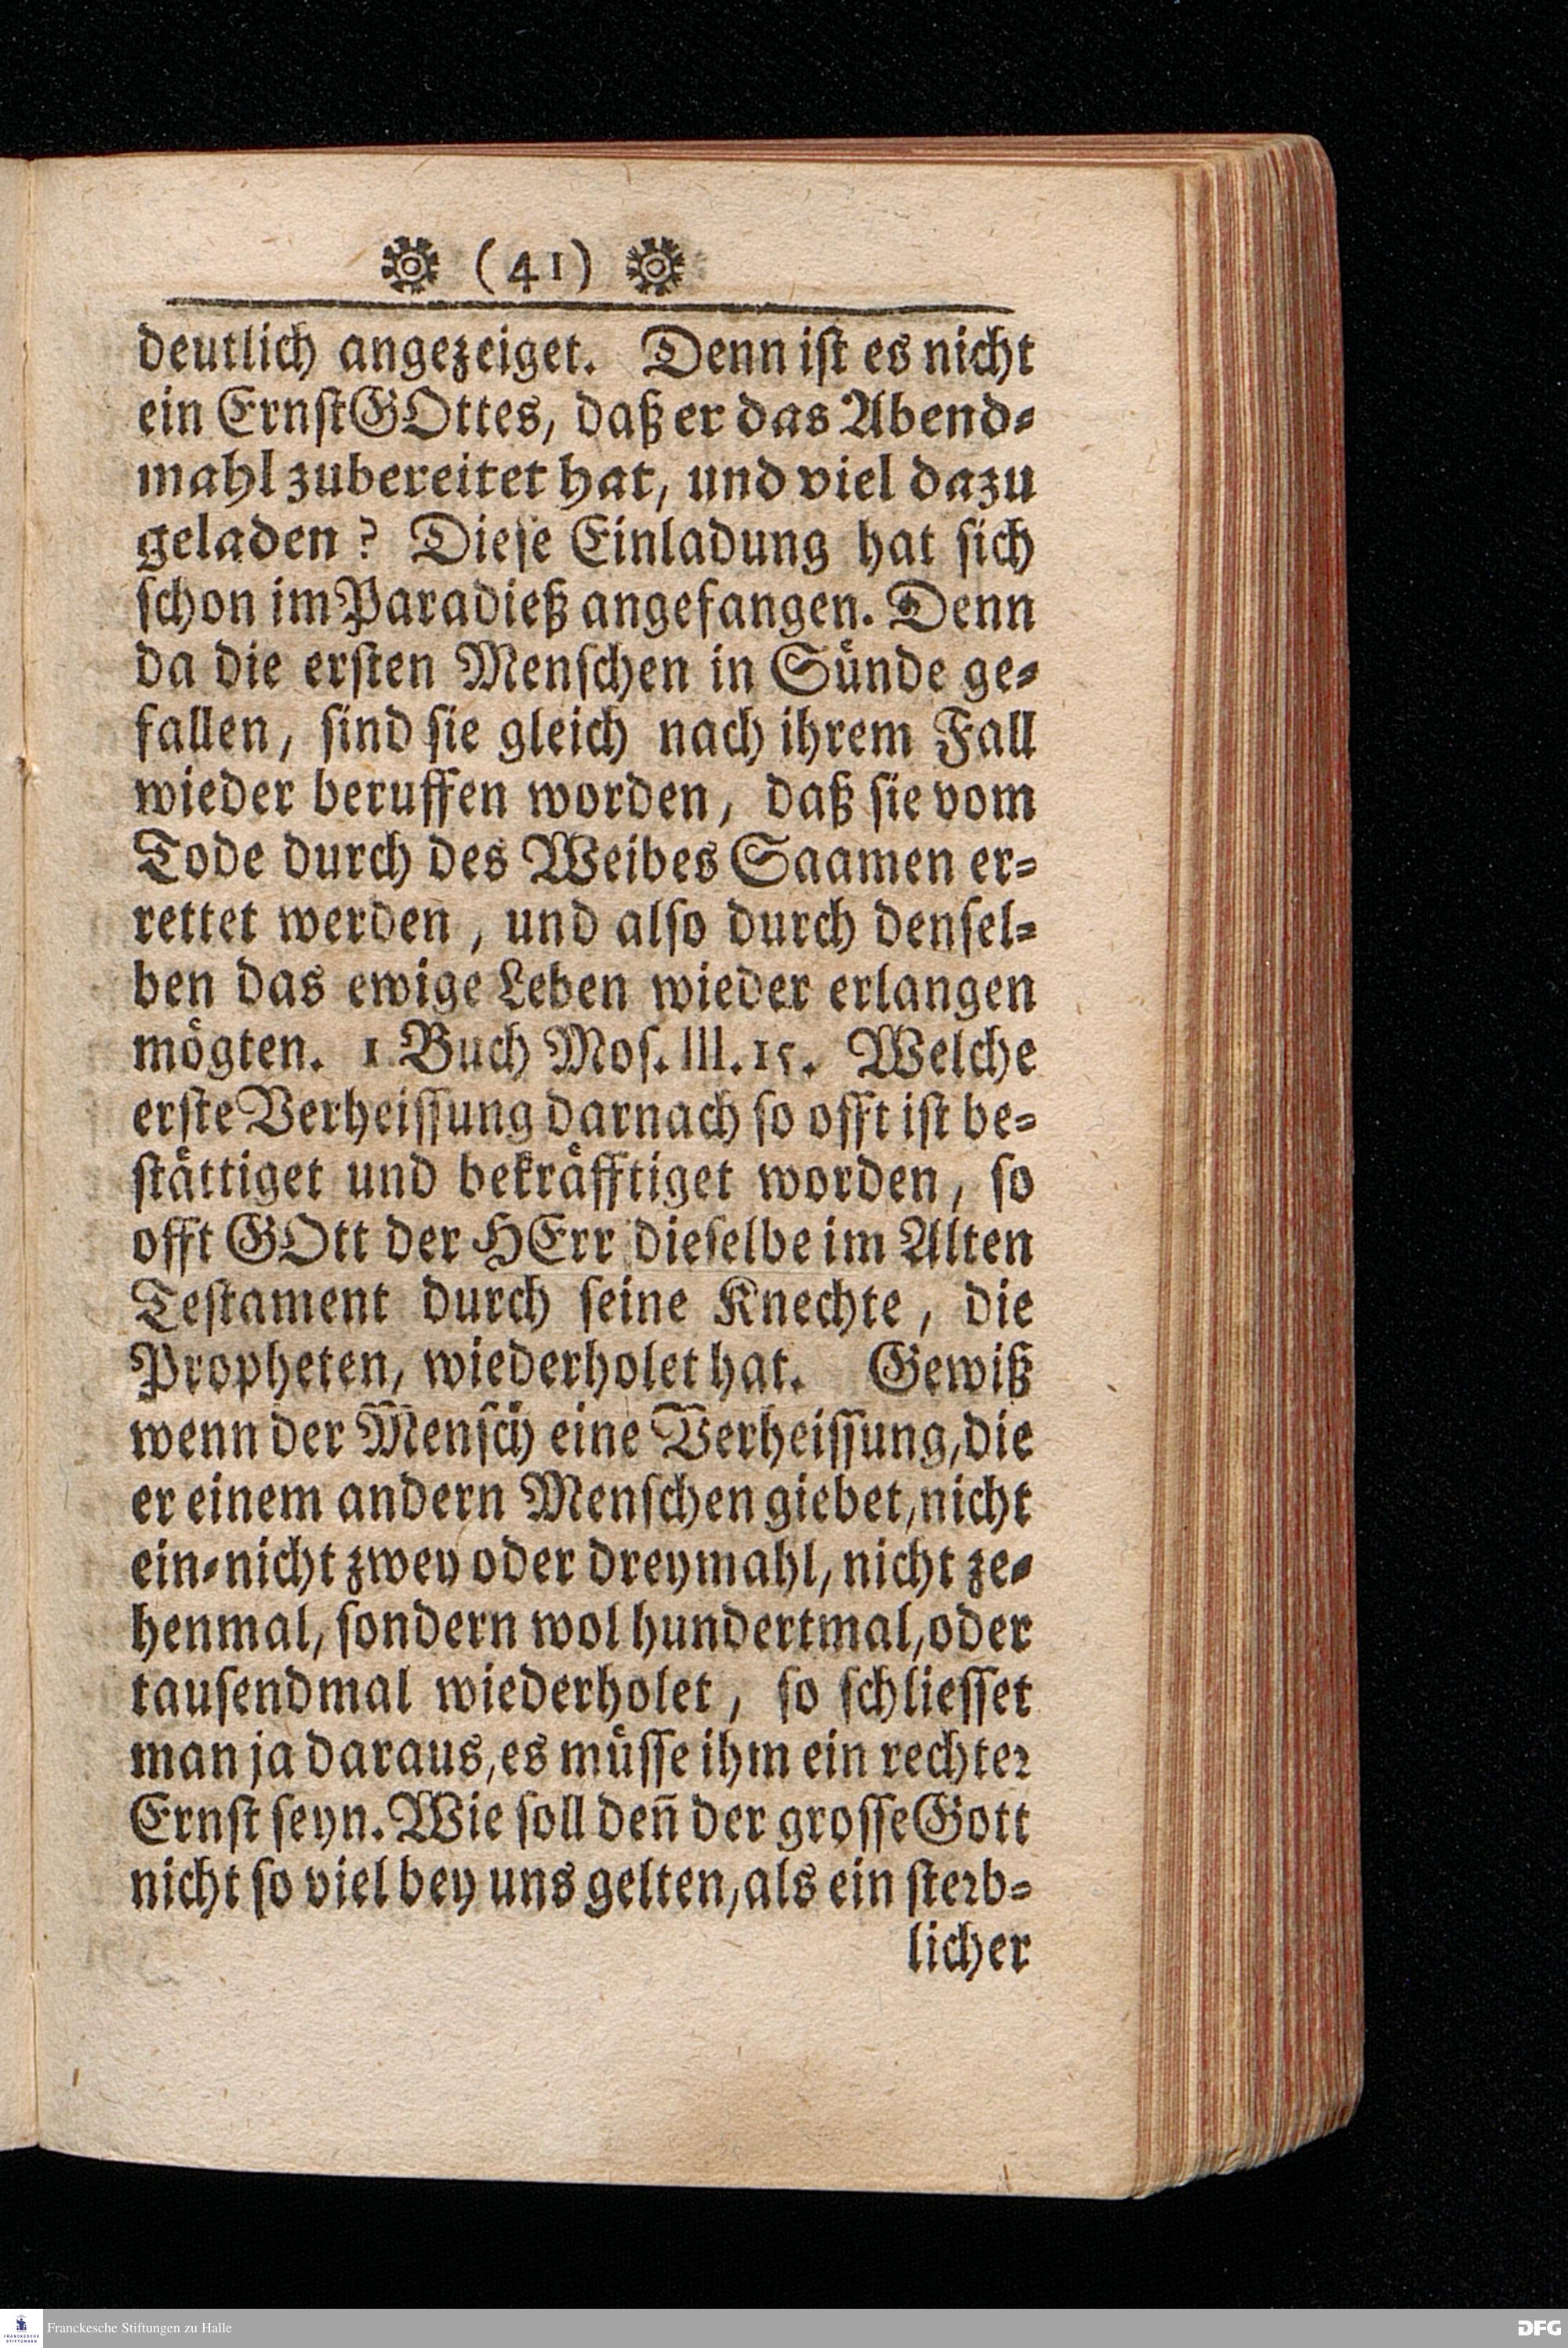 (41)
deutlich angezeiget. Denn ist es nicht
ein Ernst GOttes, daß er das Abend-
mahl zubereitet hat, und viel dazu
geladen? Diese Einladung hat sich
schon im Paradieß angefangen. Denn
da die ersten Menschen in Sünde ge-
fallen, sind sie gleich nach ihrem Fall
wieder beruffen worden, daß sie vom
Tode durch des Weibes Saamen er-
rettet werden, und also durch densel-
ben das ewige Leben wieder erlangen
mögten. 1 Buch Mos. III. 15. Welche
erste Verheissung darnach so offt ist be-
stättiget und bekräfftiget worden, so
offt GOtt der HErr dieselbe im Alten
Testament durch seine Knechte, die
Propheten, wiederholet hat. Gewiß
wenn der Mensch eine Verheissung, die
er einem andern Menschen giebet, nicht
ein-nicht zwey oder dreymahl, nicht ze-
henmal, sondern wol hundertmal, oder
tausendmal wiederholet, so schliesset
man ja daraus, es müsse ihm ein rechter
Ernst seyn. Wie soll deñ der grosse Gott
nicht so viel bey uns gelten, als ein sterb-
licher
FRANCKESCHE
STIFTUNGEN
Franckesche Stiftungen zu Halle
DFG